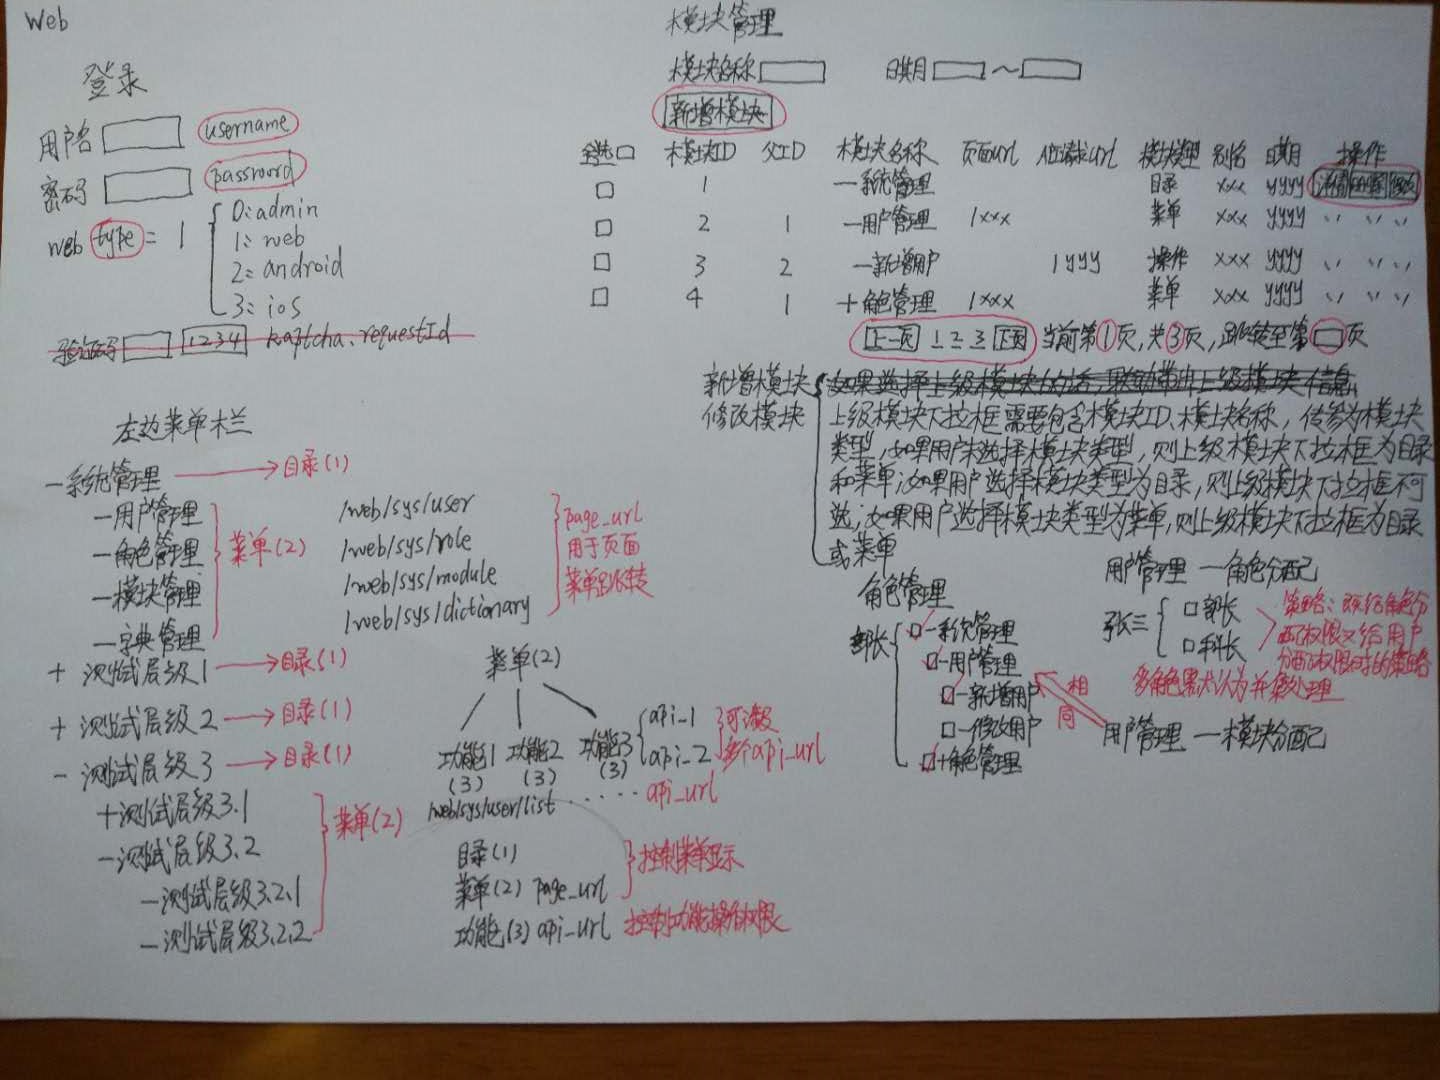 Web
登录
用户名 username
密码 password
web type = 1
0:admin
1:web
2:android
3:ios
验证码 1234 kaptcha、requestId
左边菜单栏
一系统管理 → 目录(1)
一用户管理 /web/sys/user
一角色管理 /web/sys/role
一模块管理 /web/sys/module
一字典管理 /web/sys/dictionary
菜单(2)
page_url
用于页面
菜单跳转
+ 测试层级1 → 目录(1)
+ 测试层级2 → 目录(1)
- 测试层级3 → 目录(1)
+测试层级3.1
一测试层级3.2
一测试层级3.2.1
一测试层级3.2.2
菜单(2)
菜单(2)
功能1 功能2 功能3
(3) (3) (3)
api_1
api_2
多个api_url
/web/sys/user/list ······ api_url
目录(1)
菜单(2) page_url
控制菜单显示
功能(3) api_url 控制功能操作权限
模块管理
模块名称 日期 ~
新增模块
全选 模块ID 父ID 模块名称 页面url API请求url 模块类型 别名 日期 操作
1 一系统管理 目录 xxx yyyy 详情 删除 修改
2 1 一用户管理 /xxx 菜单 xxx yyyy 〃 〃 〃
3 2 一新增用户 /yyy 操作 xxx yyyy 〃 〃 〃
4 1 +角色管理 /xxx 菜单 xxx yyyy 〃 〃 〃
上一页 1 2 3 下页 当前第1页,共3页,跳转至第 页
新增模块
修改模块
如果选择上级模块的话,联动带出上级模块信息
上级模块下拉框需要包含模块ID、模块名称,传参为模块
类型,如果用户未选择模块类型,则上级模块下拉框为目录
和菜单;如果用户选择模块类型为目录,则上级模块下拉框不可
选;如果用户选择模块类型为菜单,则上级模块下拉框为目录
或菜单
角色管理
部长
一系统管理
一用户管理
一新增用户
一修改用户
+角色管理
用户管理 一角色分配
张三
部长
科长
策略:既给角色分
配了权限又给用户
分配了权限时的策略
多角色默认为并集处理
相同
用户管理 一模块分配